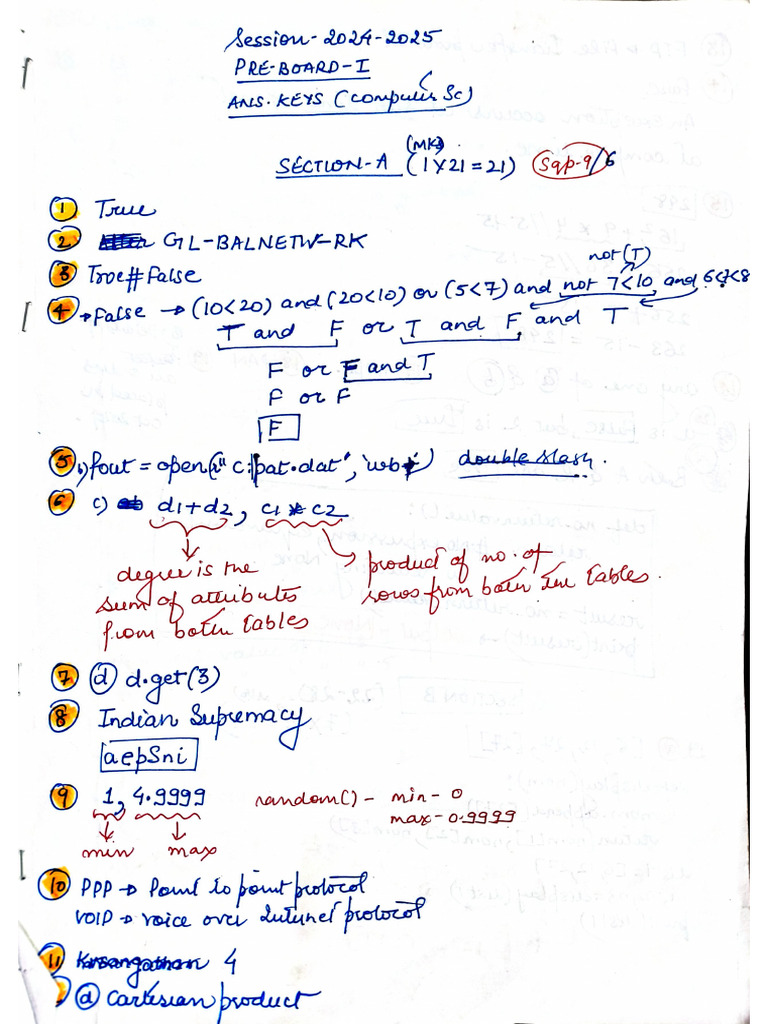 Session-2024-2025
PRE-BOARD-I
ANS. KEYS (Computer Sc)
(MKs)
SECTION-A (1X21=21) Sqp-9/6
1 True
2 GL-BALNETW-RK
3 True#False
not(T)
4 → False → (10<20) and (20<10) or (5<7) and not 7<10 and 6<7<8
T and F or T and F and T
F or F and T
F or F
F
5 b) fout = open(r"c:\pat.dat", 'wb+') double slash.
6 c) d1+d2, c1*c2
degree is the
sum of attributes
from both tables
product of no. of
rows from both the tables.
7 d d.get(3)
8 Indian Supremacy
aepSni
9 1, 4.9999 random() - min - 0
max - 0.9999
min max
10 PPP → Point to point protocol
VOIP → voice over Internet protocol
11 4
d cartesian product